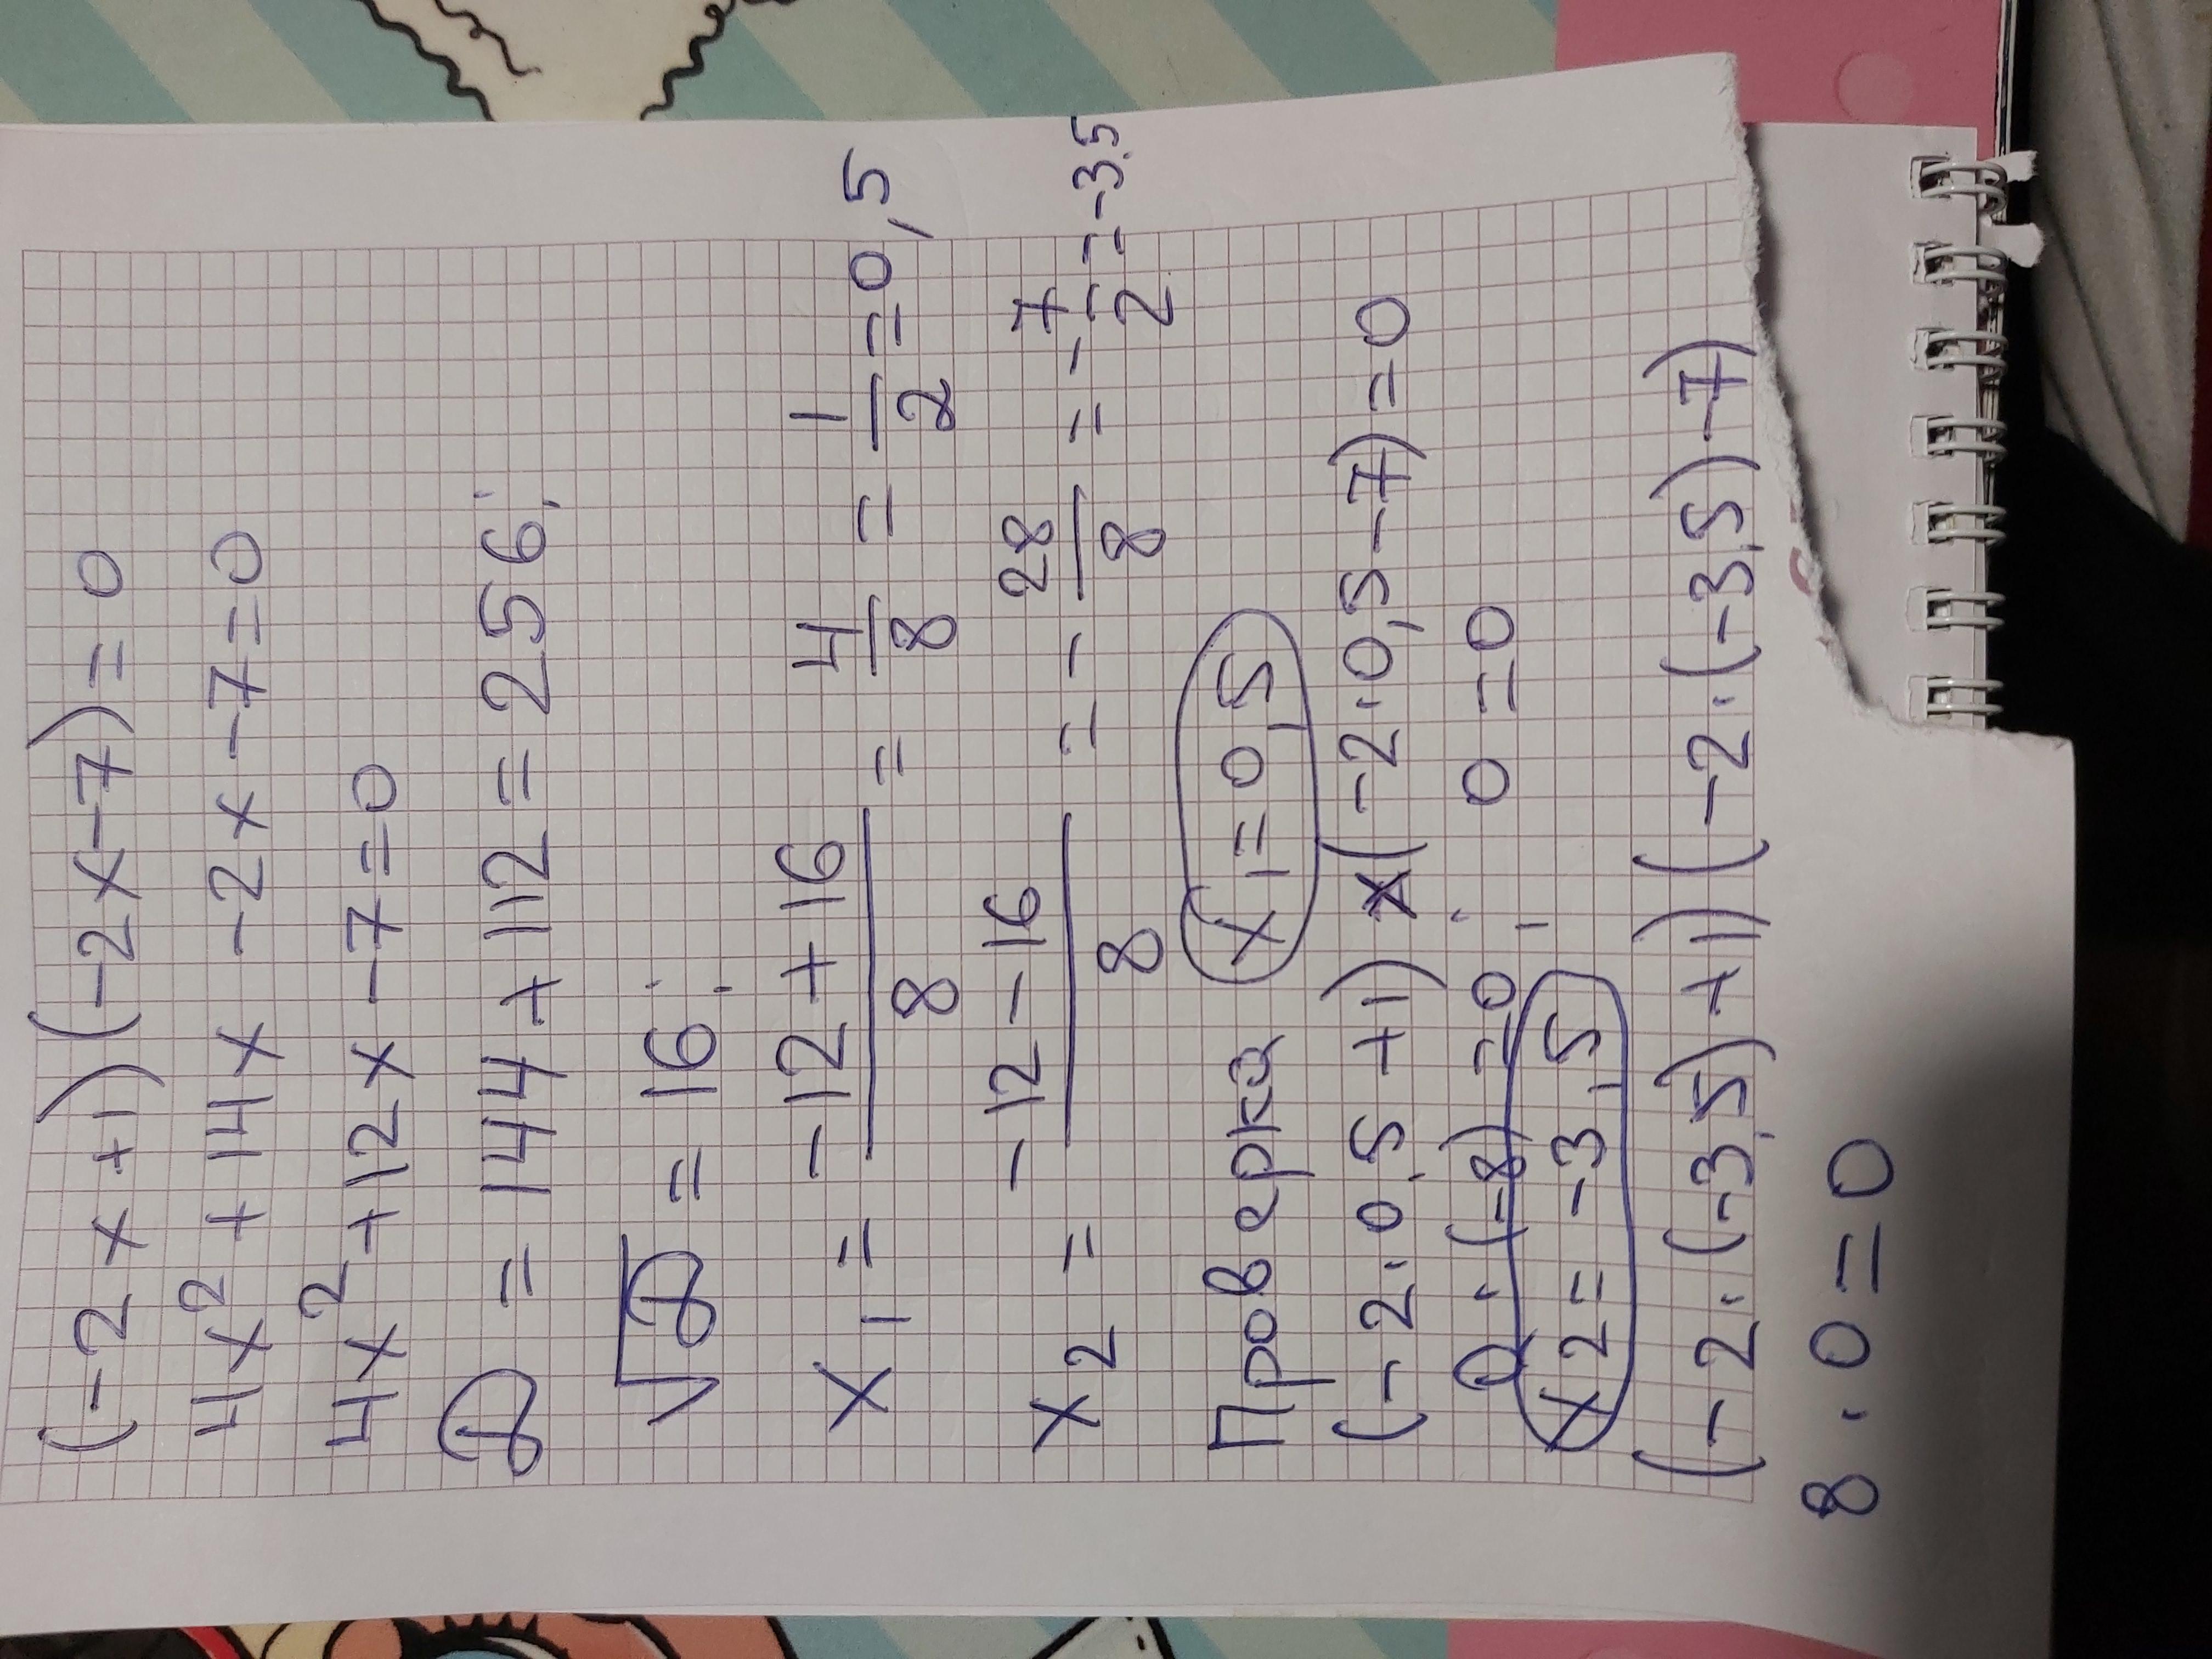 (-2x+1)(-2x-7)=0
4x²+14x-2x-7=0
4x²+12x-7=0
D=144+112=256;
√D=16;
x₁=(-12+16)/8=4/8=1/2=0,5
x₂=(-12-16)/8=-28/8=-7/2=-3,5
Проверка x₁=0,5
(-2·0,5+1)x(-2·0,5-7)=0
0·(-8)=0; 0=0
x₂=-3,5
(-2·(-3,5)+1)(-2·(-3,5)-7)
8·0=0